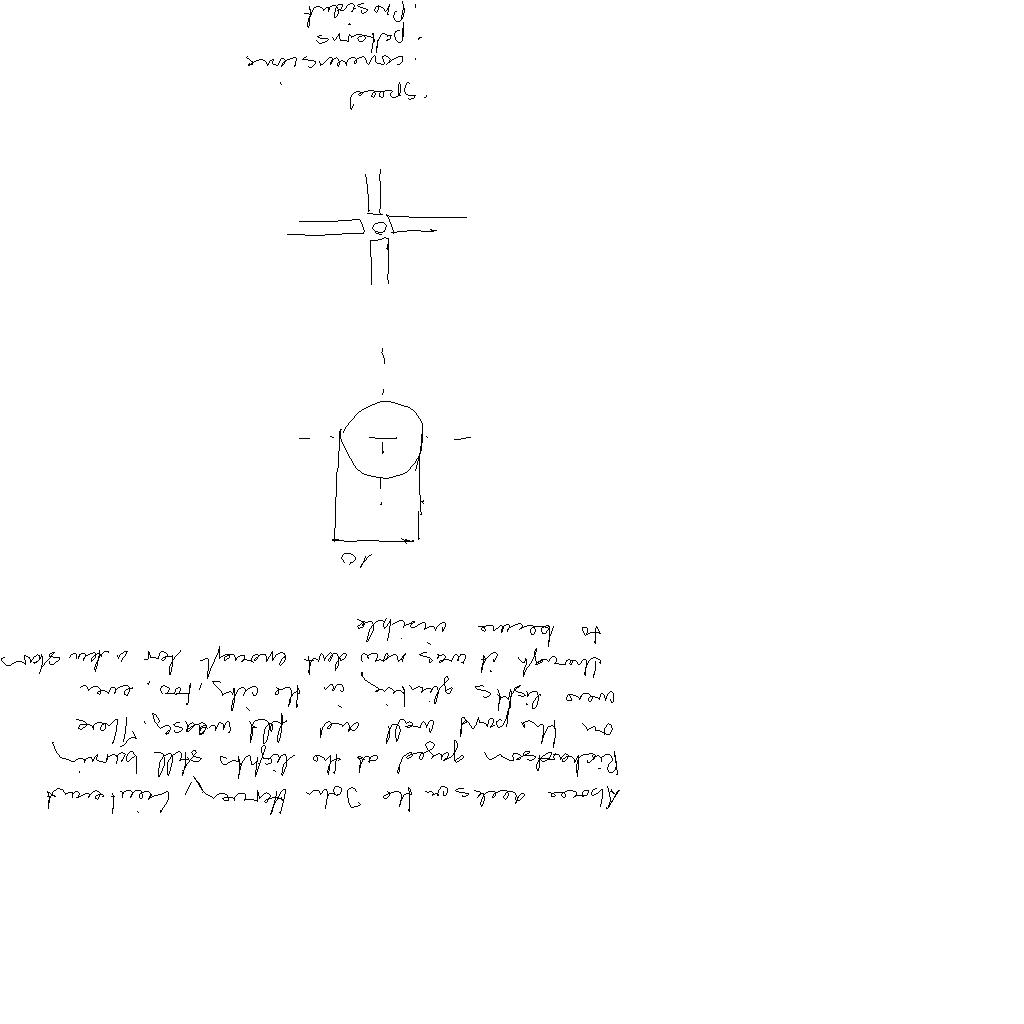 Above decks on the John Harvey, Lieutenant
Richardson gazed at the lights still burning
on the port wall and felt uneasy. There
were lights glinting in the city, too, even
though it was now dark enough for a few stars
to become visible
10
· speed
· conversions
· patterns
· President